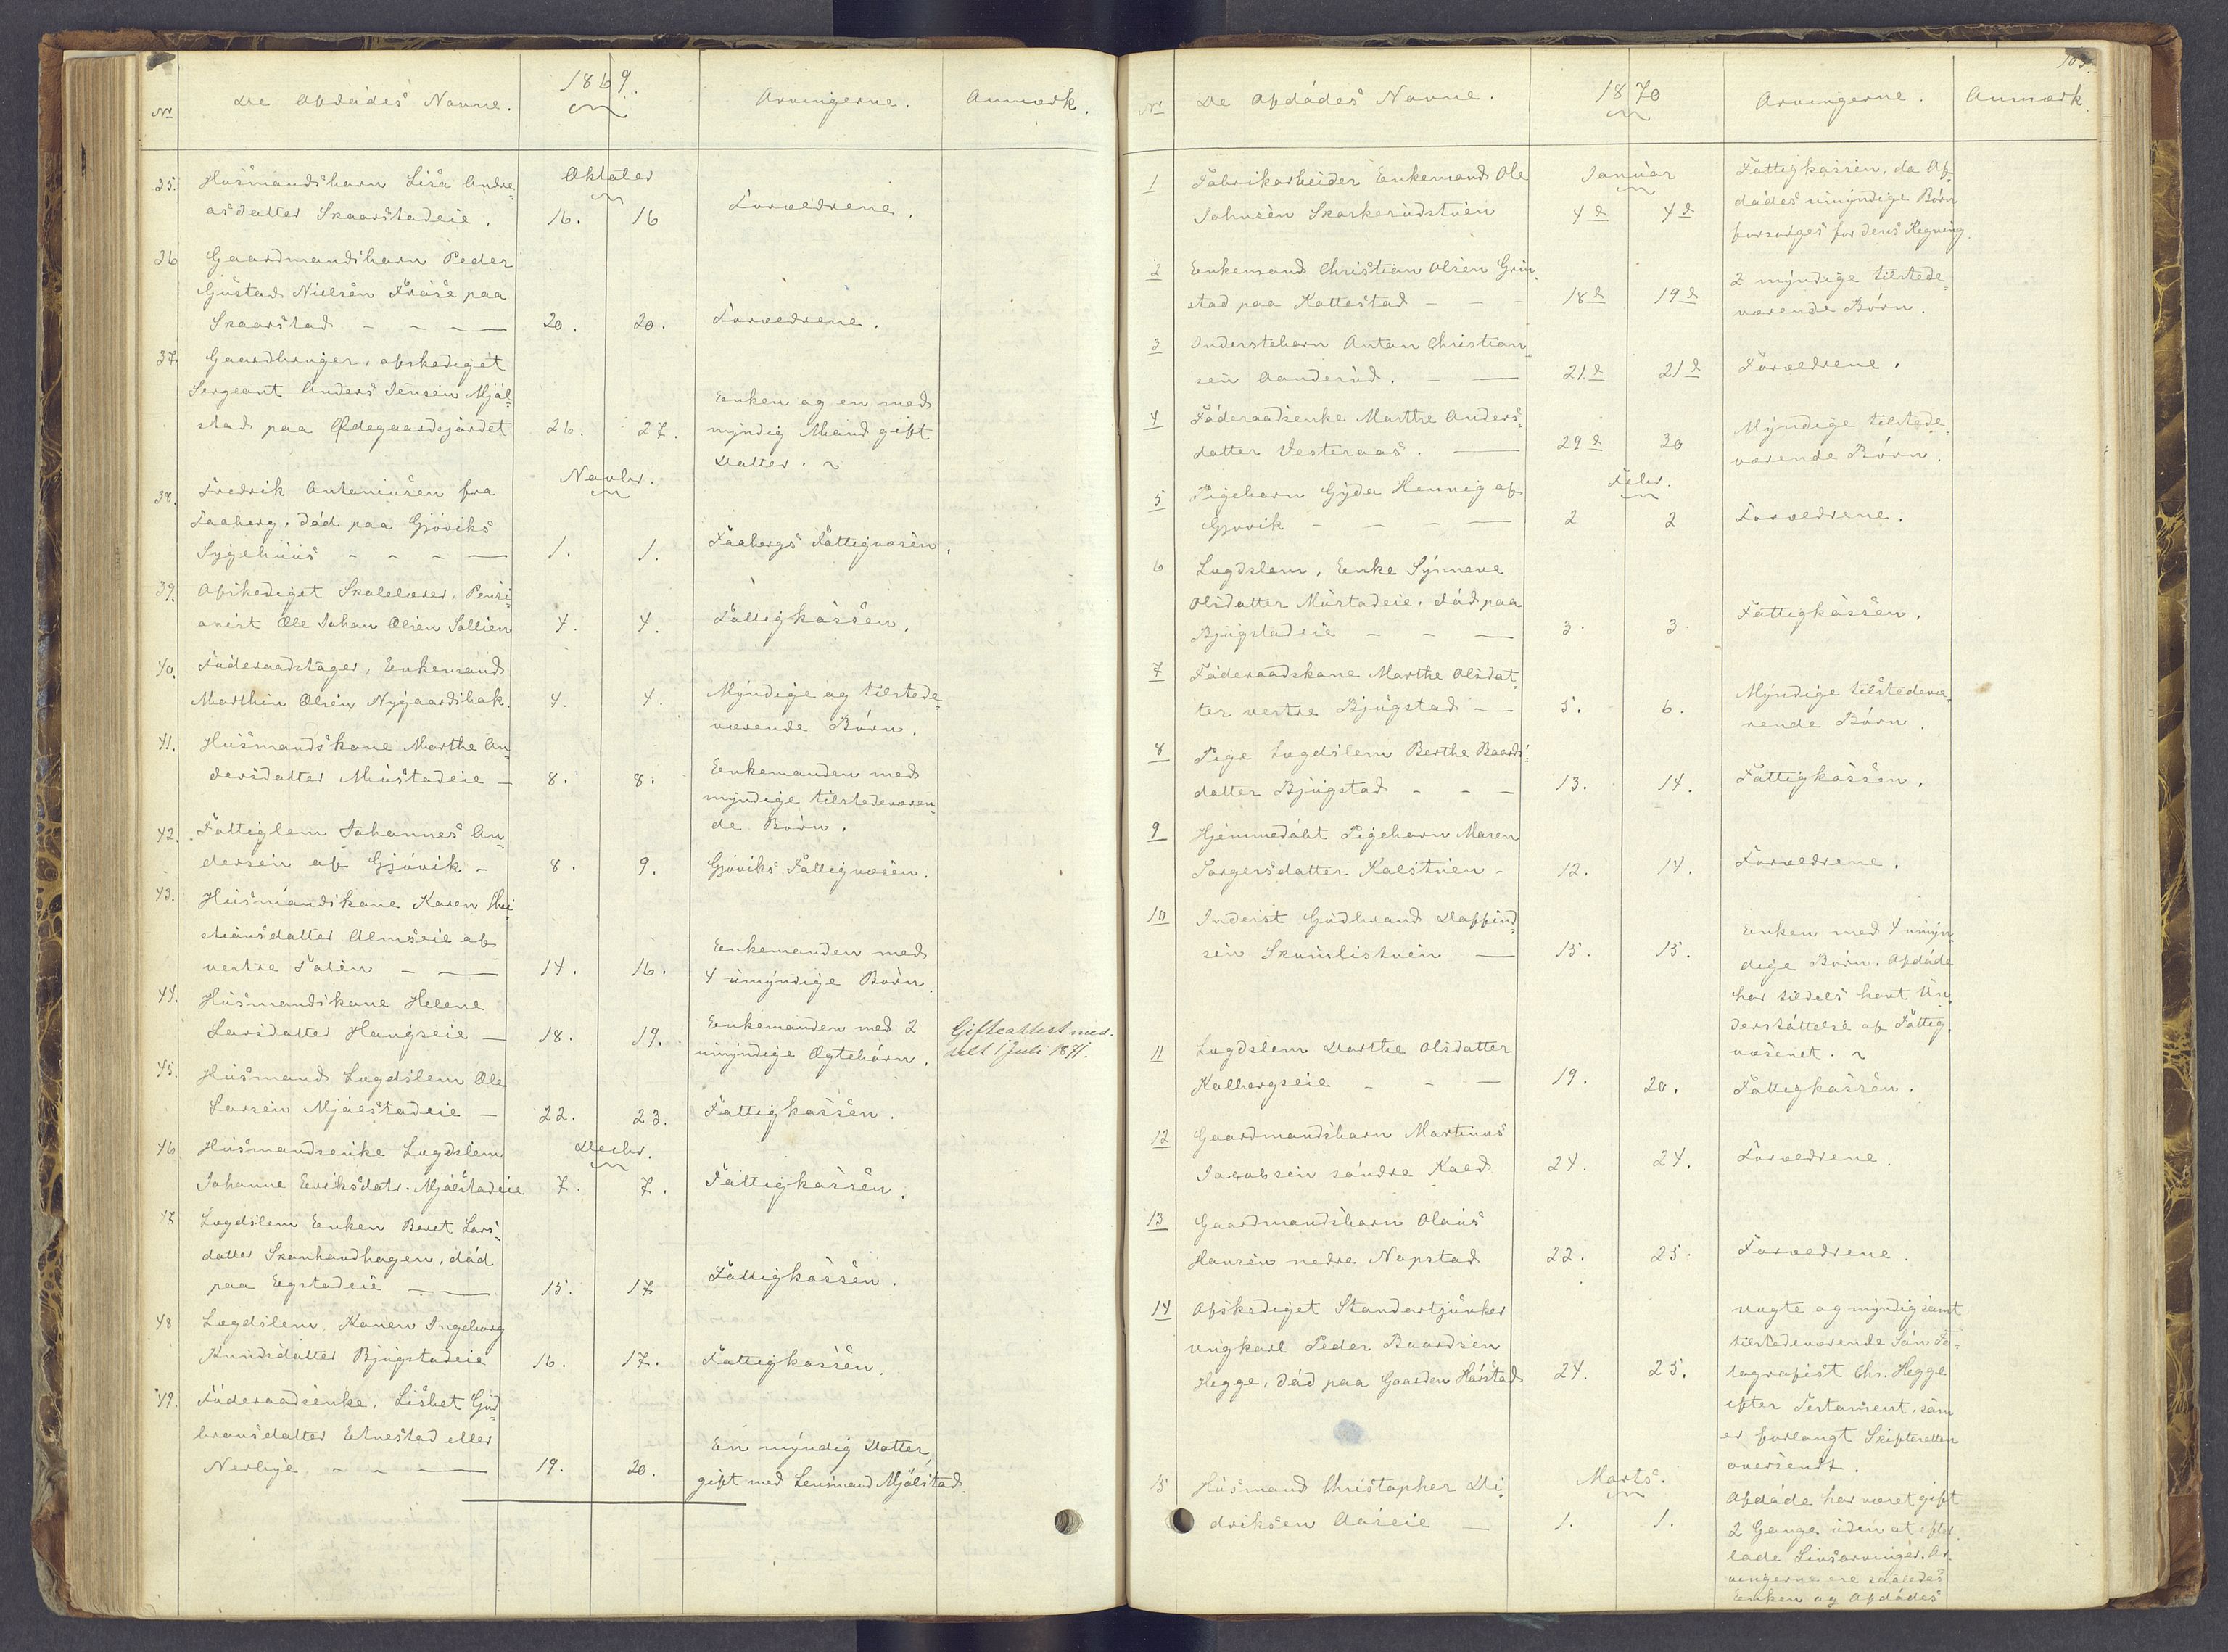 No De Afdødes Navne. 1869. Arvingerne. Anmærk.
35. Husmandsbarn Lisa Andre-
asdatter Skaarstadeie.
Oktober
16. 16 Forældrene.
36 Gaardmandsbarn Peder
Gustad Nielsen Frøse paa
Skaarstad - - - — 20. 20. Forældrene.
37 Gaardbruger, afskediget
Sergeant Anders Jensen Mjøl-
stad paa Ødegaardsjordet 26. 27.
Enken og en med
myndig Mand gift
Datter.
Novbr.
38. Fredrik Antoniusen fra
Faaberg, død paa Gjøviks
Sygehuus - - - — 1. 1. Faabergs Fattigvæsen.
39. Afskediget Skolelærer, Pensi-
onist Ole Johan Olsen Sollien 4. 4. Fattigkassen.
40. Føderaadstager, Enkemand
Marthin Olsen Nygaardsbak. 4. 4. Myndige og tilstede-
værende Børn.
41. Husmandskone Marthe An-
dersdatter Mustadeie — 8. 8. Enkemanden med
myndige tilstedeværen-
de Børn.
42. Fattiglem Johannes An-
dersen af Gjøvik - 8. 9. Gjøviks Fattigvæsen.
43. Husmandskone Karen Chri-
stiansdatter Almseie af
vestre Toten - — 14. 16. Enkemanden med
4 umyndige Børn.
44. Husmandskone Helene
Larsdatter Haugseie — 18. 19. Enkemanden med 2
umyndige Ægtebørn.
Gifteattest med-
delt 1 Juli 1871.
45. Husmand Lægdslem Ole
Larsen Mjølstadeie — 22. 23. Fattigkassen.
Decbr.
46 Husmandsenke Lægdslem
Johanne Eriksdatr. Mjølstadeie 7. 7. Fattigkassen.
47 Lægdslem Enken Beret Lars-
datter Skonhaudhagen, død
paa Egstadeie — 15. 17 Fattigkassen.
48 Lægdslem, Konen Ingeborg
Knudsdatter Bjugstadeie 16. 17. Fattigkassen.
49. Føderaadsenke, Lisbet Gud-
bransdatter Elnestad eller
Nerbye - - — 19. 20.
En myndig Datter,
gift med Lensmand Mjølstad.
103.
No De Afdødes Navne. 1870 Arvingerne. Anmærk.
1 Fabrikarbeider Enkemand Ole
Johnsen Skarkerudstuen
Januar
4de 4de
Fattigkassen, da Af-
dødes umyndige Børn
forsørges for dens Regning.
2 Enkemand Christian Olsen Grin-
stad paa Kattestad - - - 18de 19de
2 myndige tilstede-
værende Børn.
3 Inderstebarn Anton Christian-
sen Aanderud. - — 21de 21de Forældrene.
4 Føderaadsenke Marthe Anders-
datter Vesteraas. — 29de 30
Myndige tilstede-
værende Børn.
Febr.
5 Pigebarn Gyda Hennig af
Gjøvik - - - — 2 2 Forældrene.
6 Lægdslem, Enke Synneve
Olsdatter Mustadeie, død paa
Bjugstadeie - - — 3. 3. Fattigkassen.
7 Føderaadskone Marthe Olsdat-
ter vestre Bjugstad - - 5. 6.
Myndige tilstedevæ-
rende Børn.
8 Pige Lægdslem Berthe Baards-
datter Bjugstad - - — 13. 14. Fattigkassen.
9 Hjemmedøbt Pigebarn Maren
Torgersdatter Kalstuen - 12. 14. Forældrene.
10 Inderst Gudbrand Daffind-
sen Skumlistuen — 15. 15.
Enken med 4 umyn-
dige Børn. Afdøde
har tildels havt Un-
derstøttelse af Fattig-
væsenet.
11 Lægdslem Dorthe Olsdatter
Kalbergseie - - — 19. 20. Fattigkassen.
12 Gaardmandsbarn Martinus
Jacobsen søndre Kald 24. 24. Forældrene.
13 Gaardmandsbarn Olaus
Hansen nedre Nøpstad 22. 25. Forældrene.
14 Afskediget Standartjunker
ungkarl Peder Baardsen
Hegge, død paa Gaarden Høistad 24. 25.
uægte og myndig samt
tilstedeværende Søn Fo-
tografist Chr. Hegge
efter Testament, som
er forlangt Skifteretten
oversendt.
Marts.
15 Husmand Christopher Di-
driksen Aaseie — 1. 1.
Afdøde har været gift
2 Gange uden at efter-
lade Livsarvinger. Ar-
vingerne ere saaledes
Enken og Afdødes